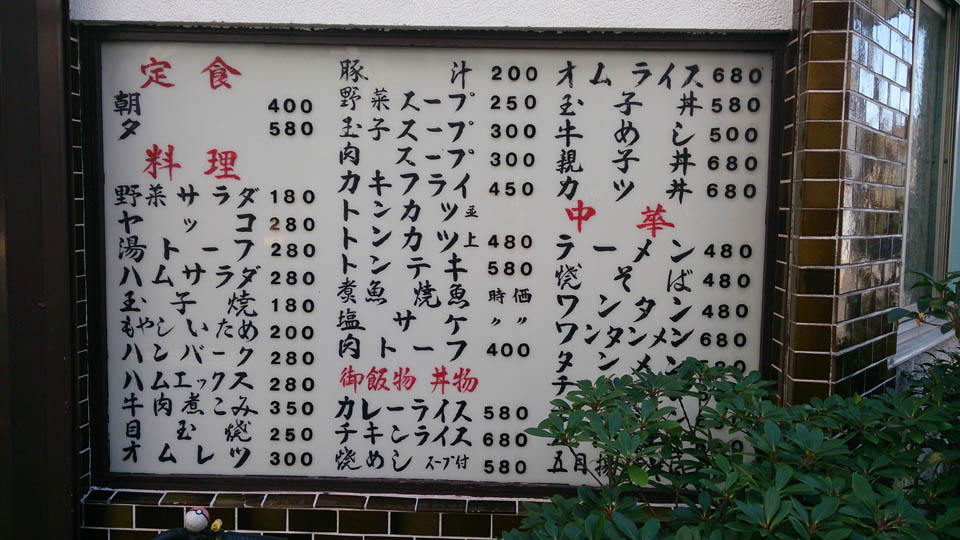 定食
朝 400
夕 580
料理
野菜サラダ 180
ヤッコ 280
湯トーフ 280
ハムサラダ 280
玉子焼 180
もやしいため 200
ハンバーク 280
ハムエックス 280
牛肉煮こみ 350
目玉焼 250
オムレツ 300
豚汁 200
野菜スープ 250
玉子スープ 300
肉スープ 300
カキフライ 450
トンカツ並
トンカツ上 480
トンテキ 580
煮魚焼魚 時価
塩サケ 〃 〃
肉トーフ 400
御飯物 丼物
カレーライス 580
チキンライス 680
焼めし スープ付 580
オムライス 680
玉子丼 580
牛めし 500
親子丼 680
カツ丼 680
中華
ラーメン 480
焼そば 480
ワンタン 480
ワンタンメン 680
タンメン
チ
五目